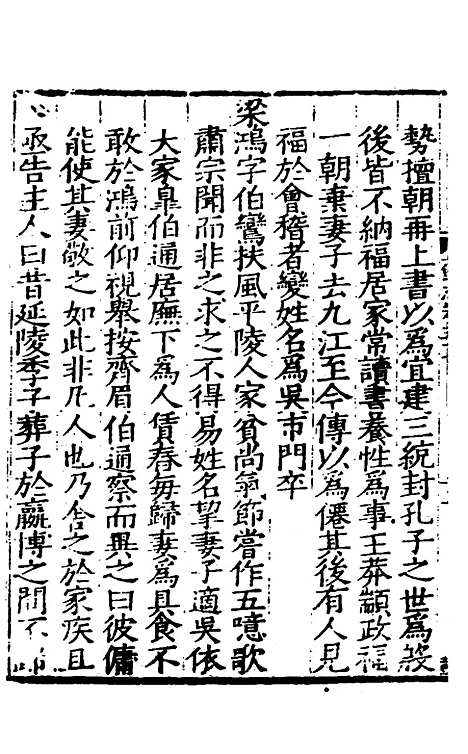 勢擅朝再上書以為宜建三統封孔子之世為殷
後皆不納福居家常讀書養性為事王莽顓政福
一朝棄妻子去九江至今傳以為僊其後有人見
福於會稽者變姓名為吳市門卒
梁鴻字伯鸞扶風平陵人家貧尚氣節嘗作五噫歌
肅宗聞而非之求之不得易姓名挈妻子適吳依
大家臯伯通居廡下為人賃舂每歸妻為具食不
敢於鴻前仰視舉按齊眉伯通察而異之曰彼傭
能使其妻敬之如此非凡人也乃舍之於家疾且
亟告主人曰昔延陵季子葬子於嬴博之間不